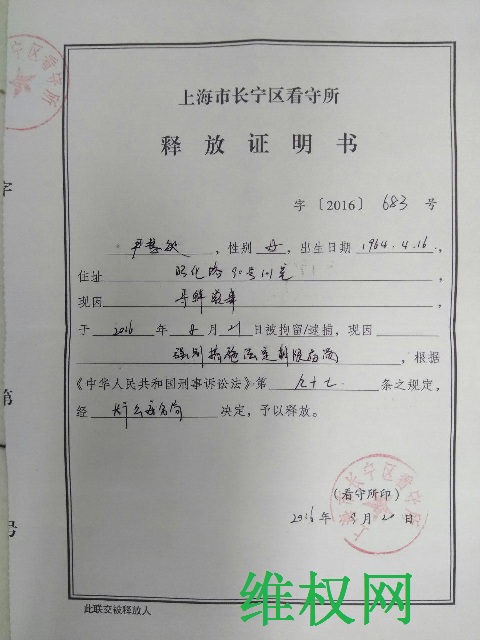 上海市长宁区看守所
释放证明书
字〔2016〕683号
尹慧敏，性别女，出生日期1964.4.16.，
住址 昭化路90号101室，
现因 寻衅滋事，
于2016年 月21日被拘留/逮捕，现因
强制措施法定期限届满，根据
《中华人民共和国刑事诉讼法》第九十七条之规定，
经长宁公安分局决定，予以释放。
（看守所印）
2016年 月20日
此联交被释放人
字
第
号
长宁区看守所
上海市长宁区看守所
维权网